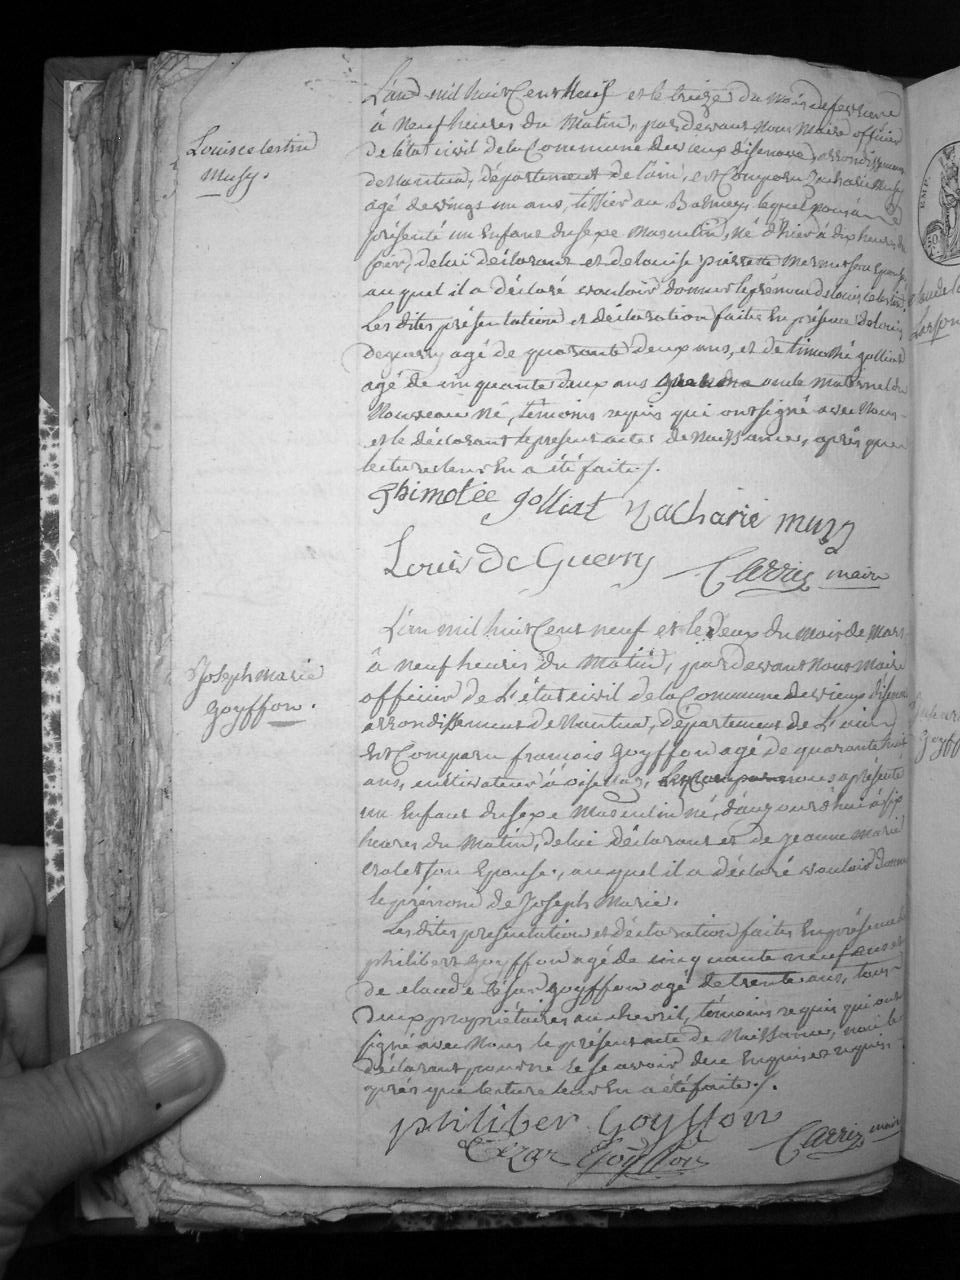 Louis celestin
Musy.
L'an mil huit Cent Neuf et le treize du Mois de fevrier
à Neuf heures du Matin, par devant Nous Maire officier
de l'état civil de la Commune de vieux disenave, arrondissement
de Nantua, département de l'ain, est Comparu Zacharie Musy
agé de vingt un ans, au Balmey, lequel
présenté un Enfant du sexe Masculin, Né d'hier à dix heures du
soir, de lui déclarant et de louise pierrette Mermet son Epouse
au quel il a déclaré vouloir donner le prénom de louis celestin.
Les dites présentation et déclaration faites En présence de louis
deguerry agé de quarante deux ans, et de timothé golliat
agé de cinquante deux ans oncle maternel du
Nouveau Né, témoins requis qui ont signé avec Nous
et le déclarant le present acte de Naissance, après que
lecture leur En a été faite ./.
Thimotée golliat Zacharie musy
Louis De Guerry Carrier maire
Joseph marie
goyffon.
L'an mil huit Cent neuf et le deux du Mois de Mars
à Neuf heures du Matin, par devant Nous Maire
officier de L'état civil de la Commune de vieux disenave
arrondissement de Nantua, département de L'ain,
Est Comparu francois Goyffon agé de quarante huit
ans, cultivateur à nous a présenté
un Enfant du sexe Masculin né d'aujourd'hui à six
heures du Matin, de lui déclarant et de Jeanne Marie
son Epouse, auquel il a déclaré vouloir donner
le prénom de Joseph Marie.
Les dites présentation et déclaration faites En présence de
philibert goyffon agé de cinquante neuf ans et
de claude César goyffon agé de trente ans, tous
deux propriétaires au chevril, témoins requis qui ont
signé avec Nous le présent acte de Naissance, non le
déclarant pour ne le savoir de ce Enquis et requis
après que lecture leur En a été faite ./.
philiber Goyffon
Cézar Goyffon Carrier maire